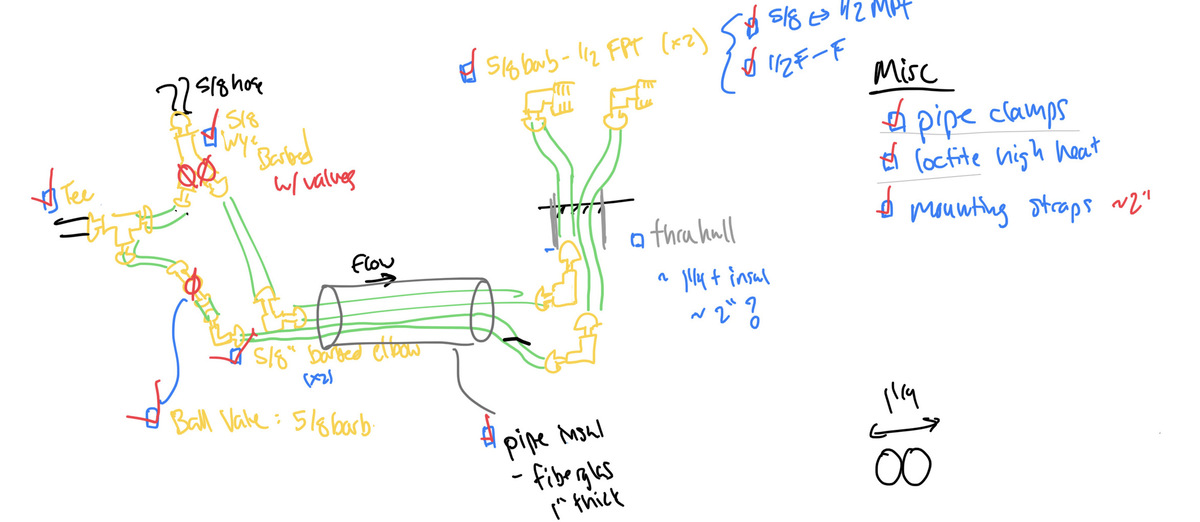 5/8 <-> 1/2 MPT
5/8 barb - 1/2 FPT (x2)
1/2 F - F
Misc
pipe clamps
loctite high heat
mounting straps ~2"
5/8 hose
5/8
Wye
Barbed
w/ valves
Tee
Flow
thruhull
~ 1 1/4 + insul
~ 2" ?
5/8" barbed elbow
(x2)
Ball Valve: 5/8 barb
pipe insul
- fiberglas
1" thick
1 1/4